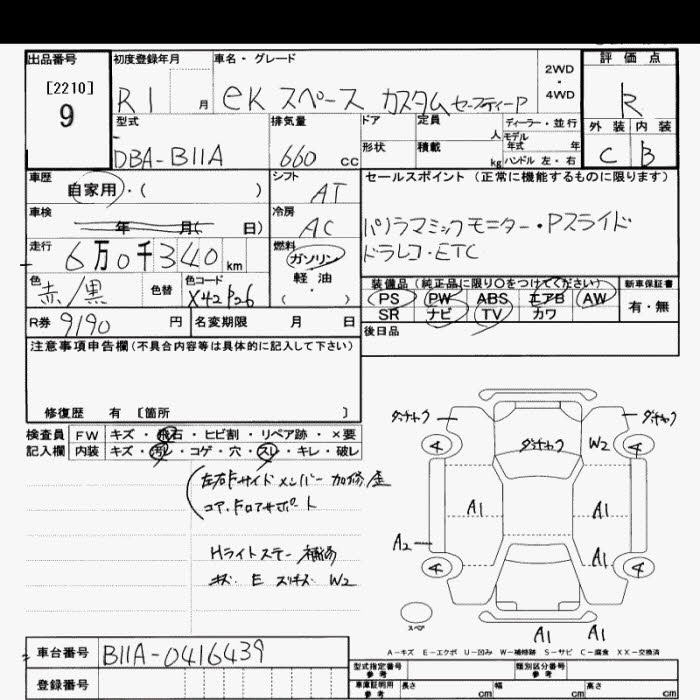 出品番号 初度登録年月 車名・グレード 評価点
[2210]
9
R1 月 eK スペース カスタム セーフティーP 2WD・4WD R
型式 排気量 ドア 定員 人 ディーラー・並行 外装 内装
DBA-B11A 660 cc 形状 積載 kg モデル年式 年 C B
ハンドル 左・右
車歴 シフト セールスポイント (正常に機能するものに限ります)
自家用・( ) AT
車検 冷房
年 月( 日) AC パノラマミックモニター・Pスライド
走行 燃料 ドラレコ・ETC
6万0千340km ガソリン
色 色替 色コード 軽油 装備品 (純正品に限り○をつけてください) 新車保証書
赤/黒 X42 P26 ( ・ ) PS PW ABS エアB AW 有・無
SR ナビ TV カワ
R券 9190 円 名変期限 月 日 後日品
注意事項申告欄(不具合内容等は具体的に記入して下さい)
修復歴 有 〔箇所 〕
検査員 FW キズ・飛石・ヒビ割・リペア跡・×要
記入欄 内装 キズ・汚レ・コゲ・穴・スレ・キレ・破レ
左右Fサイドメンバー 加修/歪
コア・Fロアサポート
Hライトステー 補修
キズ E スリキズ W2
ダッチャク ダッチャク ダッチャク
W2
4 4
A1 A1
A2 A1
4 4
スペア
A1 A1
A-キズ E-エクボ U-凹み W-補修跡 S-サビ C-腐食 XX-交換済
車台番号 B11A-0416439 型式指定番号 参考 類別区分番号 参考
登録番号 車庫証明用 参考 長さ cm 幅 cm 高さ cm